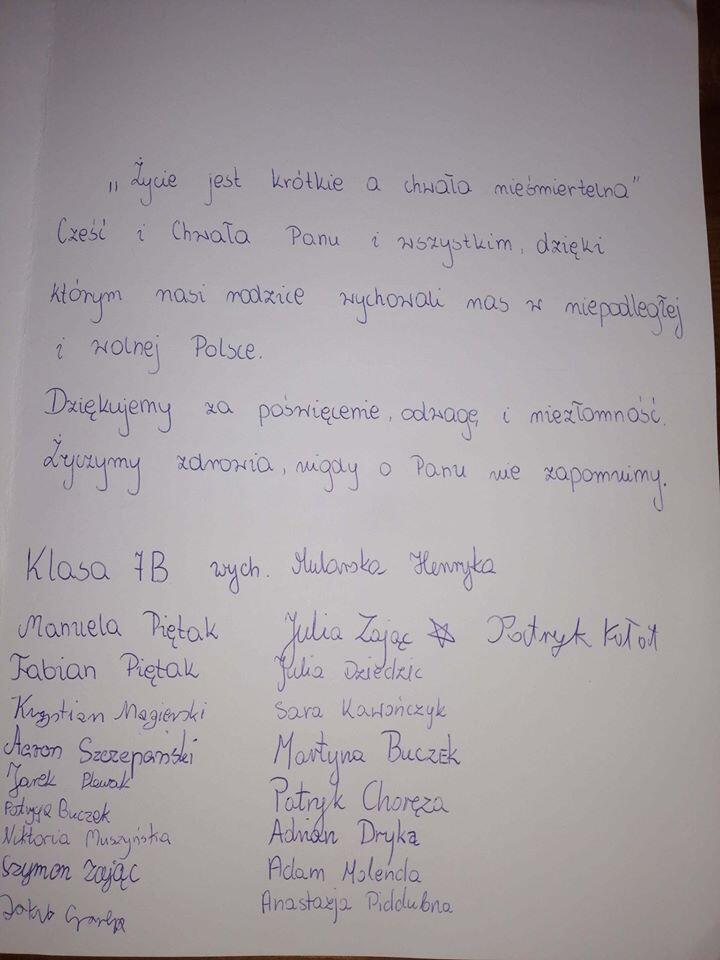 „Życie jest krótkie a chwała nieśmiertelna”
Cześć i Chwała Panu i wszystkim, dzięki
którym nasi rodzice wychowali nas w niepodległej
i wolnej Polsce.
Dziękujemy za poświęcenie, odwagę i niezłomność.
Życzymy zdrowia, nigdy o Panu nie zapomnimy.
Klasa 7B wych. Mularska Henryka
Manuela Piętak Julia Zając Patryk Kołot
Fabian Piętak Julia Dziedzic
Krystian Magierski Sara Kawończyk
Aaron Szczepański Martyna Buczek
Jarek Plewak Patryk Choręza
Patrycja Buczek Adrian Dryka
Wiktoria Muszyńska Adam Molenda
Szymon Zając Anastazja Piddubna
Jakub